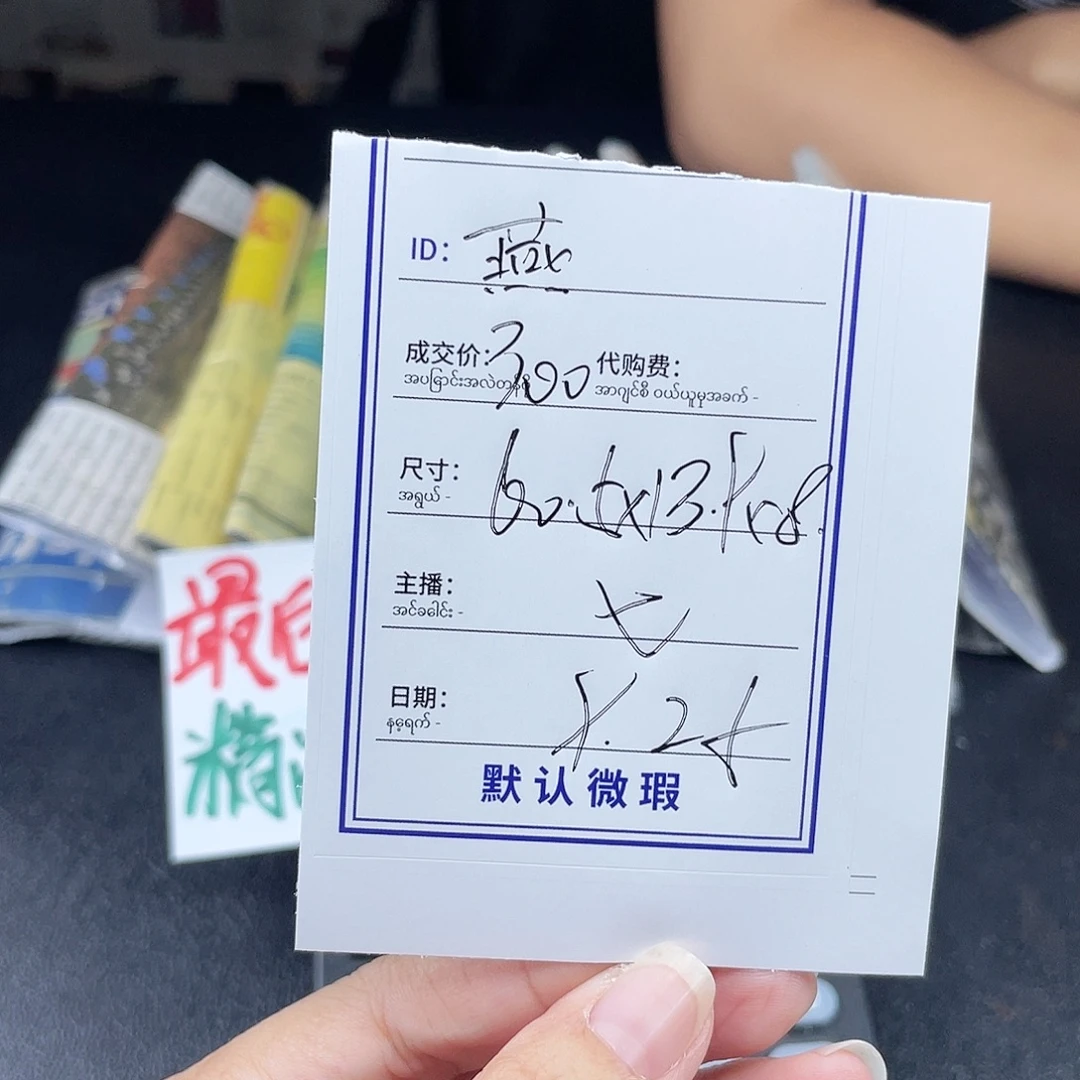 ID: 燕
成交价: 300 代购费:
အပြောင်းအလဲတန်ဖိုး အာဂျင်စီ ဝယ်ယူမှုအခက် -
尺寸: 60.5x13.5x8.
အရွယ် -
主播: 七
အင်ခေါင်း -
日期: 5.24
နေ့ရက် -
默认微瑕
最
精